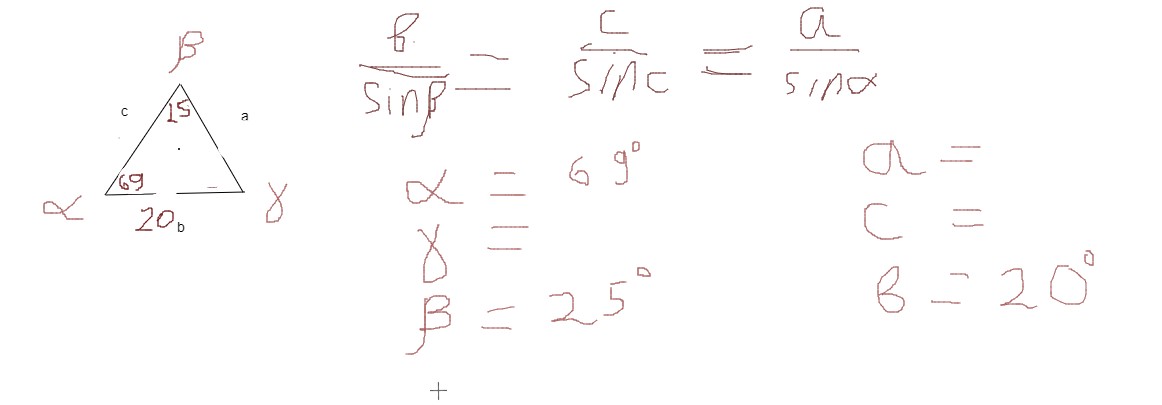 β
c
a
15
69
α
γ
20
b
b/sinβ = c/sinc = a/sinα
α = 69°
γ =
β = 25°
a =
c =
b = 20°